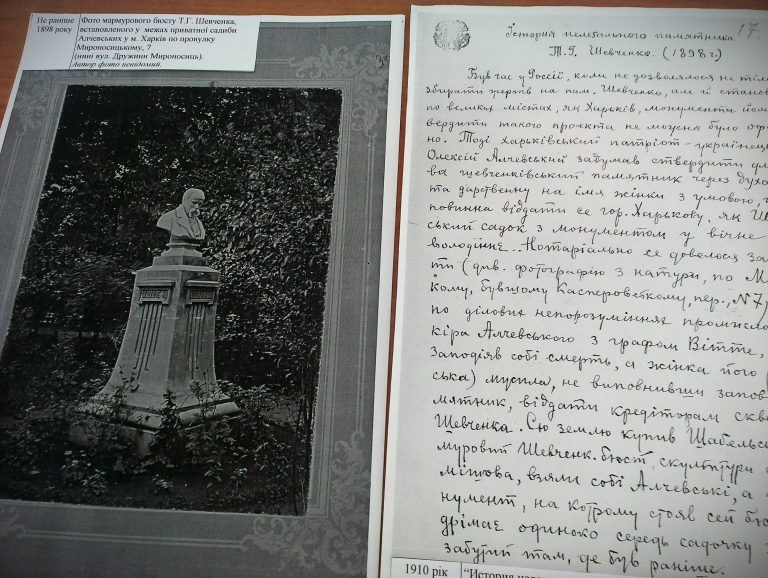 Не раніше
1898 року
Фото мармурового бюсту Т.Г. Шевченка,
встановленого у межах приватної садиби
Алчевських у м. Харків по провулку
Мироносицькому, 7
(нині вул. Дружини Мироносиць).
Автор фото невідомий.
17.
Істория нелегального памятника
Т. Г. Шевченка. (1898 г.)
Був час у Россії, коли не дозволялося не тіл
збирати жертв на пам. Шевченко, але й станов
по великих містах, як Харьків, монумента йом
вердити такого проєкта не можна було
но. Тоді харьківський патріот-українець
Олексій Алчевський забумав ствердити
ва шевченківський памятник через духо
та дарственну на імя жінки з умовою,
повинна віддати се гор. Харькову, як Ш
ський садок з монументом у вічне
володіннє. Нотаріально се довелося за
ти (див. фотографію з натури, по М
кому, бувшому Касперовскому, пер., №7)
по ділових непорозуміннях промисло
кіра Алчевського з графом Вітте,
заподіяв собі смерть, а жінка його
ська) мусила, не виповнивши запов
мятник, віддати кредіторам скв
Шевченка. Сю землю купив Щабельс
муровий Шевченк. бюст, скульптури
мішова, взяли собі Алчевські, а
нумент, на котрому стояв сей бю
дрімає одиноко середь садочку
забутий там, де був раніше.
1910 рік
"История